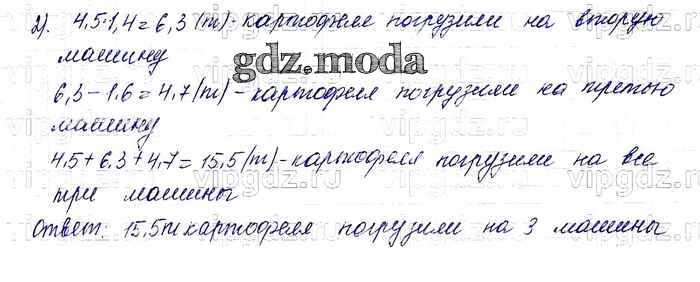 2). 4,5·1,4=6,3(т)-картофеля погрузили на вторую
машину
gdz.moda
6,3-1,6=4,7(т)-картофеля погрузили на третью
машину
4,5+6,3+4,7=15,5(т)-картофеля погрузили на все
три машины
Ответ: 15,5т картофеля погрузили на 3 машины